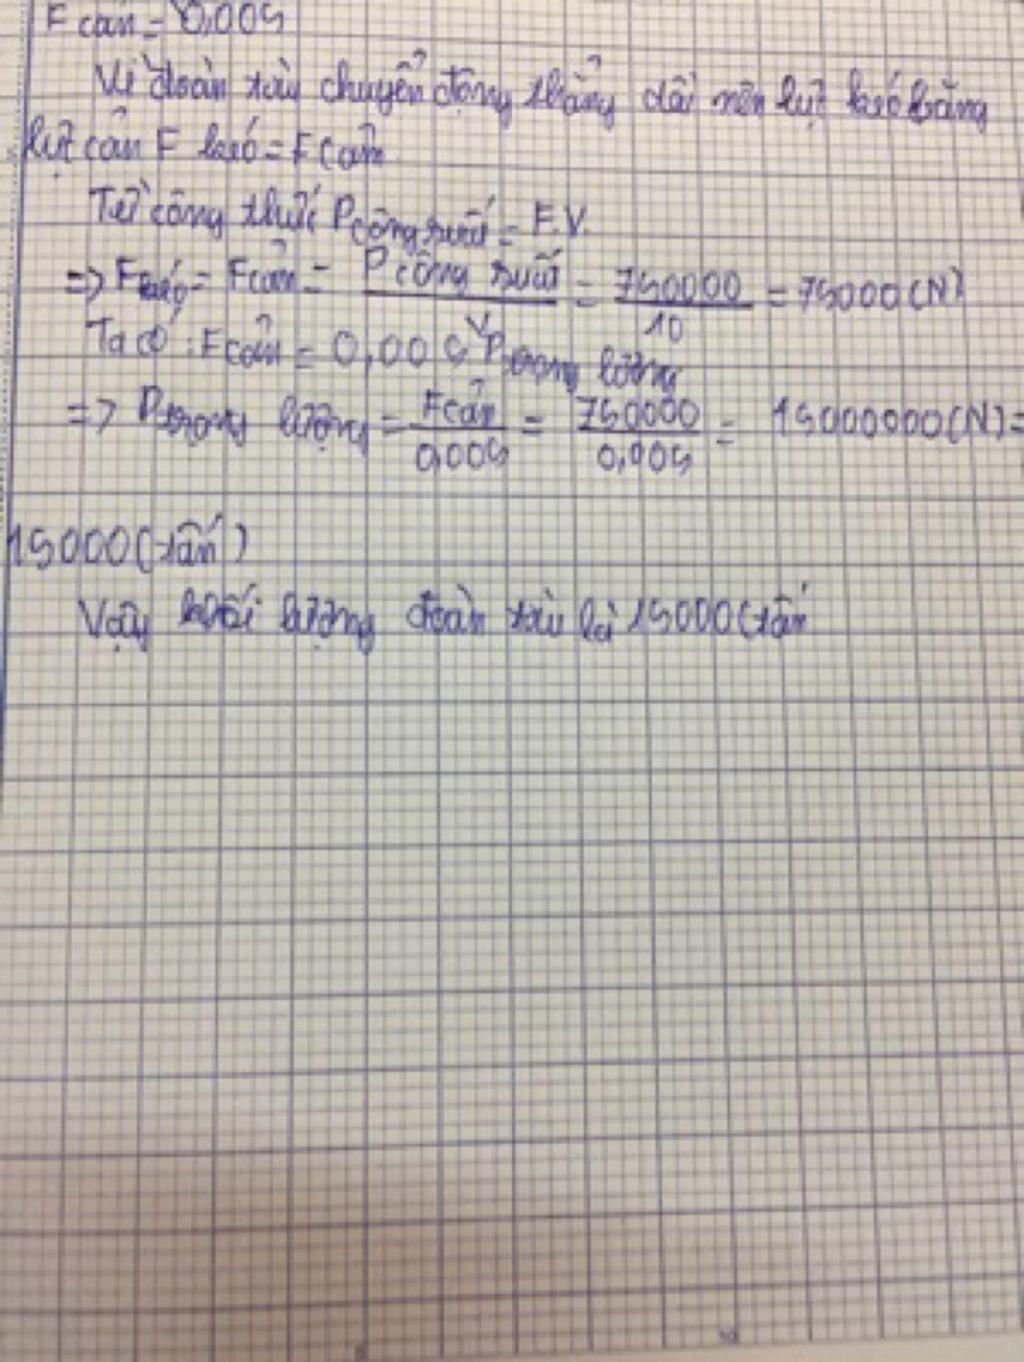 F cản = 0,005
Vì đoàn tàu chuyển động thẳng đều nên lực kéo bằng
lực cản F kéo = F cản
Từ công thức P công suất = F.V.
=> F kéo = F cản = P công suất / V = 750000 / 10 = 75000 (N)
Ta có: F cản = 0,005 P trọng lượng
=> P trọng lượng = F cản / 0,005 = 750000 / 0,005 = 15000000 (N) =
15000 (tấn)
Vậy khối lượng đoàn tàu là 15000 (tấn